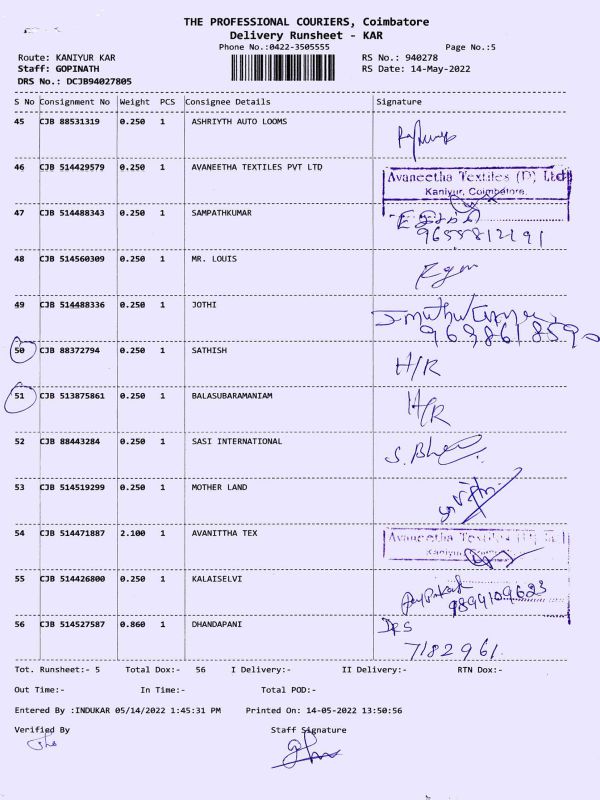 THE PROFESSIONAL COURIERS, Coimbatore
Delivery Runsheet - KAR
Phone No.:0422-3505555
Page No.:5
Route: KANIYUR KAR
RS No.: 940278
Staff: GOPINATH
RS Date: 14-May-2022
DRS No.: DCJB94027805
S No Consignment No Weight PCS Consignee Details Signature
45 CJB 88531319 0.250 1 ASHRIYTH AUTO LOOMS
46 CJB 514429579 0.250 1 AVANEETHA TEXTILES PVT LTD Avaneetha Textiles (P) Ltd
Kaniyur, Coimbatore.
47 CJB 514488343 0.250 1 SAMPATHKUMAR
9655812191
48 CJB 514560309 0.250 1 MR. LOUIS
49 CJB 514488336 0.250 1 JOTHI
50 CJB 88372794 0.250 1 SATHISH H/R
51 CJB 513875861 0.250 1 BALASUBARAMANIAM H/R
52 CJB 88443284 0.250 1 SASI INTERNATIONAL
53 CJB 514519299 0.250 1 MOTHER LAND
54 CJB 514471887 2.100 1 AVANITTHA TEX Avaneetha Textiles (P) Ltd
55 CJB 514426800 0.250 1 KALAISELVI
56 CJB 514527587 0.860 1 DHANDAPANI
7182961
Tot. Runsheet:- 5 Total Dox:- 56 I Delivery:- II Delivery:- RTN Dox:-
Out Time:- In Time:- Total POD:-
Entered By :INDUKAR 05/14/2022 1:45:31 PM Printed On: 14-05-2022 13:50:56
Verified By Staff Signature